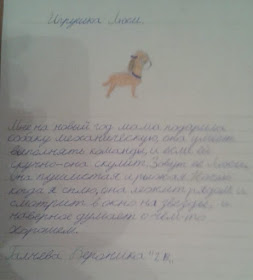 Игрушка Люси.
Мне на новый год мама подарила
собаку механическую, она умеет
выполнять команды, и если ей
скучно-она скулит. Зовут её Люси,
она пушистая и рыжая. Ночью
когда я сплю, она лежит рядом и
смотрит в окно на звезды, и
наверное думает о чем-то
хорошем.
Вероника "2